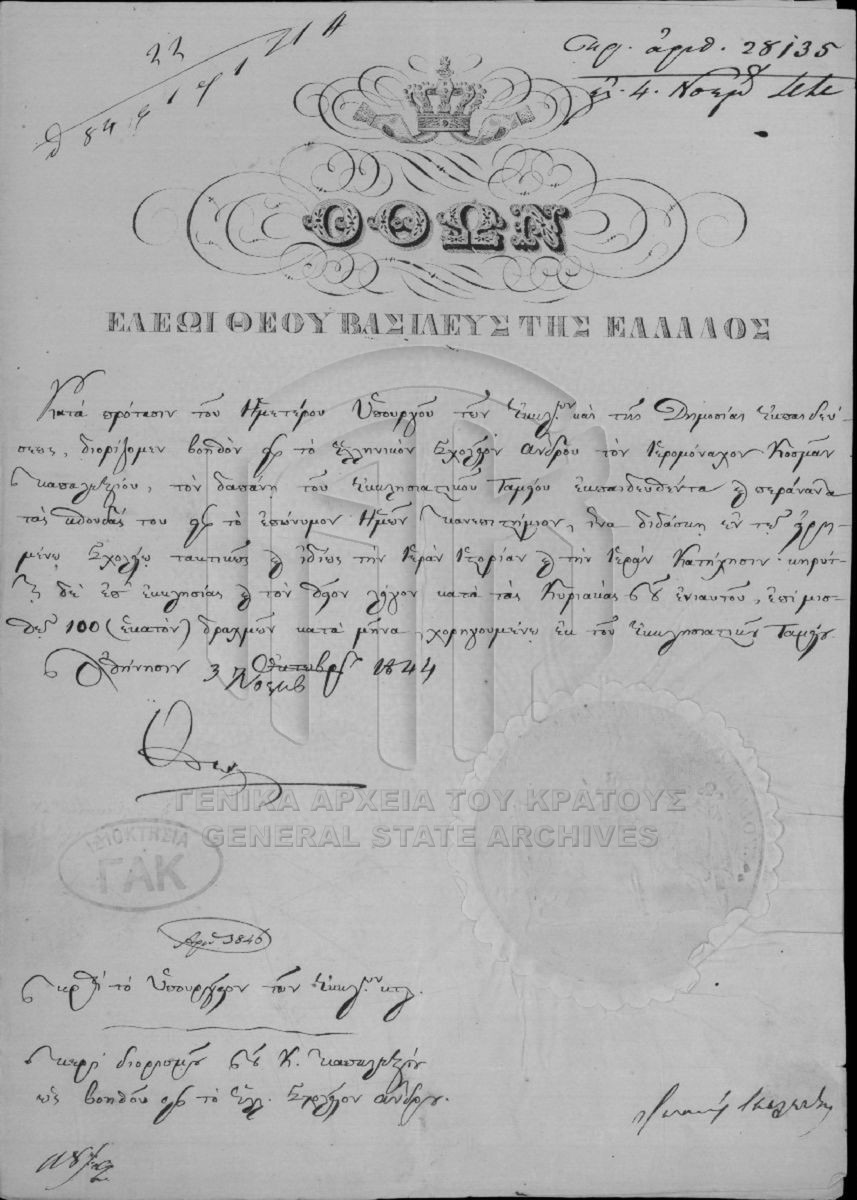 22
Πρ. ἀριθ. 28135
4. Νοεμβ
ΟΘΩΝ
ΕΛΕΩΙ ΘΕΟΥ ΒΑΣΙΛΕΥΣ ΤΗΣ ΕΛΛΑΔΟΣ
Κατὰ πρότασιν τοῦ Ἡμετέρου Ὑπουργοῦ τῶν Ἐκκλ.ῶν καὶ τῆς Δημοσίας ἐκπαιδεύ-
σεως, διορίζομεν βοηθὸν εἰς τὸ Ἑλληνικὸν Σχολεῖον Ἄνδρου τὸν Ἱερομόναχον Κοσμᾶν
τὸν δαπάνῃ τοῦ Ἐκκλησιαστικοῦ Ταμείου ἐκπαιδευθέντα καὶ περάναντα
τὰς σπουδάς του εἰς τὸ ἐπώνυμον Ἡμῶν Πανεπιστήμιον, ἵνα διδάσκῃ ἐν τῷ εἰρη-
μένῳ Σχολείῳ τακτικῶς καὶ ἰδίως τὴν Ἱερὰν Ἱστορίαν καὶ τὴν Ἱερὰν Κατήχησιν· κηρύτ-
τῃ δὲ ἐπ' ἐκκλησίας καὶ τὸν θεῖον λόγον κατὰ τὰς Κυριακὰς τοῦ ἐνιαυτοῦ, ἐπὶ μισ-
θῷ 100 (ἑκατὸν) δραχμῶν κατὰ μῆνα, χορηγουμένῳ ἐκ τοῦ Ἐκκλησιαστικοῦ Ταμείου.
Ἀθήνησιν 3 Ὀκτωβρ 1844
Νοεμβ
Ὄθων
ΓΕΝΙΚΑ ΑΡΧΕΙΑ ΤΟΥ ΚΡΑΤΟΥΣ
GENERAL STATE ARCHIVES
ΙΔΙΟΚΤΗΣΙΑ
ΓΑΚ
Πρὸς τὸ Ὑπουργεῖον τῶν Ἐκκλ.ῶν κτλ.
Περὶ διορισμοῦ τοῦ Κ.
ὡς βοηθοῦ εἰς τὸ Ἑλλ. Σχολεῖον Ἄνδρου.